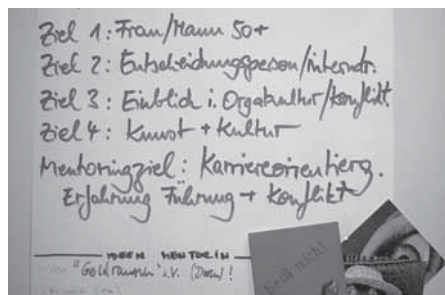 Ziel 1: Frau/Mann 50+
Ziel 2: Entscheidungsperson/interdr.
Ziel 3: Einblick i. Orgakultur/Konflikt.
Ziel 4: Kunst + Kultur
Mentoringziel: Karriereorientierg.
Erfahrung Führung + Konflikt
IDEEN MENTORIN
"Goldrausch" i.V. (Dr